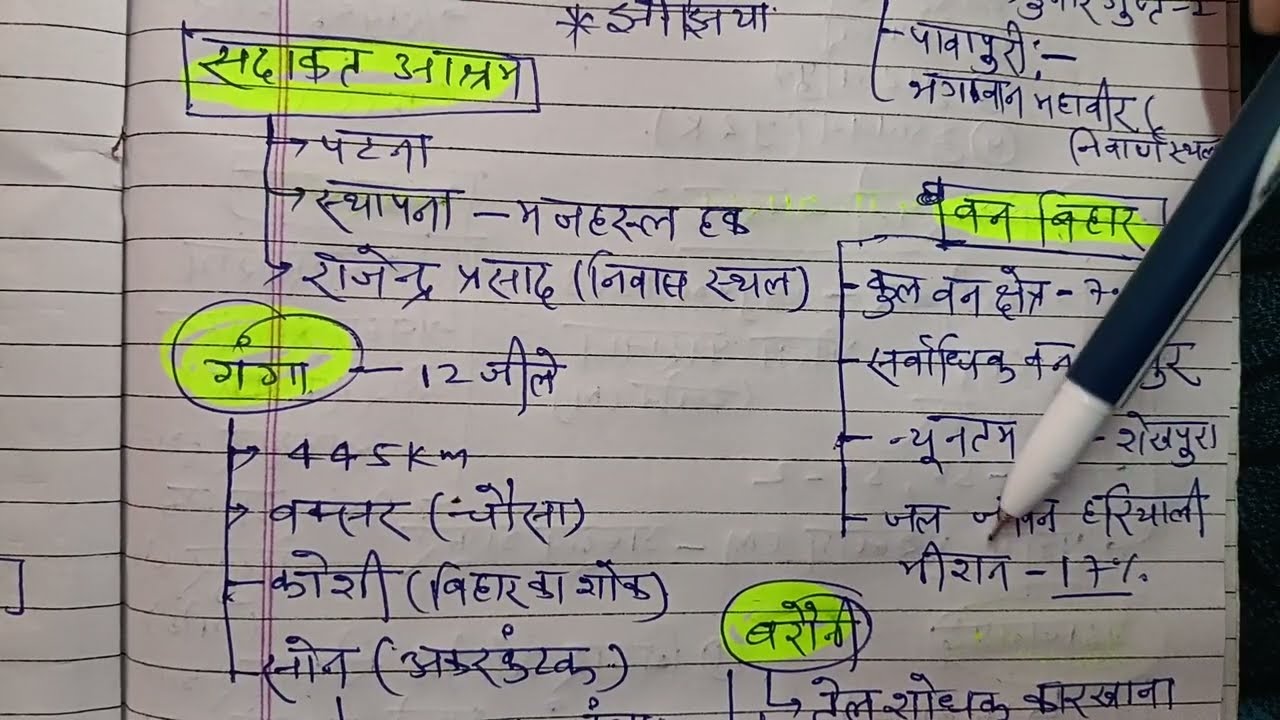 * झिझिया
सदाकत आश्रम
पटना
स्थापना - मजहरूल हक
राजेन्द्र प्रसाद (निवास स्थल)
गंगा - 12 जीले
445 Km
बक्सर (चौसा)
कोशी (बिहार का शोक)
सोन (अमरकंटक)
पावापुरी :-
भगवान महावीर (
निवार्ण स्थल
वन बिहार
कुल वन क्षेत्र - 7.
सर्वाधिक वन
न्यूनतम - शेखपुरा
जल जीवन हरियाली
मीशन - 17%
बरौनी
तेल शोधक कारखाना